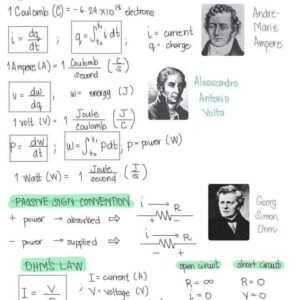 1 Coulomb (C) = - 6.24 x 10^18 electrons
i = dq/dt ; q = ∫_{t0}^{t1} i dt ; i = current
q = charge
Andre-
Marie
Ampere
1 Ampere (A) = 1 Coulomb/second (C/S)
v = dw/dq ; w = energy (J)
1 volt (V) = 1 Joule/Coulomb (J/C)
Alessandro
Antonio
Volta
P = dw/dt ; W = ∫_{t0}^{t1} Pdt ; p = power (W)
1 Watt (W) = 1 Joule/second (J/S)
PASSIVE SIGN CONVENTION
+ power → absorbed ⇨ i → R
+ -
- power → supplied ⇨ i → R
- +
Georg
Simon
Ohm
OHMS LAW
I = V
; I = current (A)
V = voltage (V)
open circuit
R = ∞
i = 0
short circuit
R = 0
V = 0